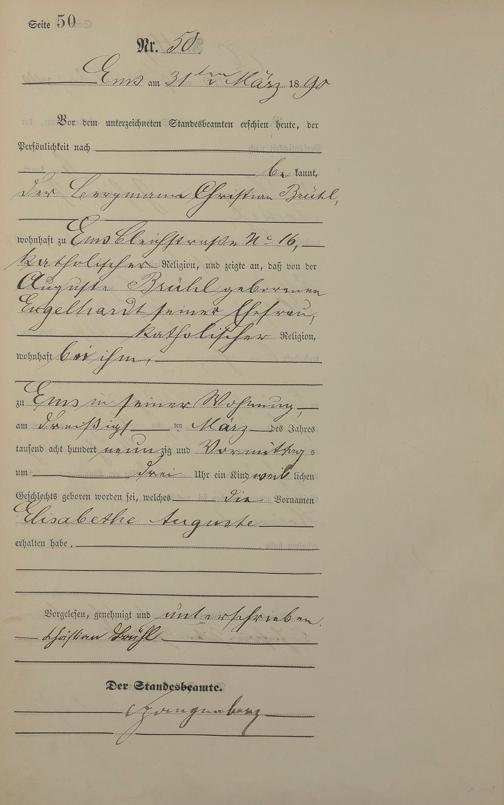 Seite 50
Nr. 50.
Ems am 31ten März 1890
Vor dem unterzeichneten Standesbeamten erschien heute, der
Persönlichkeit nach
be kannt,
der Bergmann Christian Brühl,
wohnhaft zu Ems Bleichstraße No 16,
katholischer Religion, und zeigte an, daß von der
Auguste Brühl geborenen
Engelhardt seiner Ehefrau,
katholischer Religion,
wohnhaft bei ihm,
zu Ems in seiner Wohnung,
am dreißigsten März des Jahres
tausend acht hundert neunzig und Vormittags
um drei Uhr ein Kind weiblichen
Geschlechts geboren worden sei, welches die Vornamen
Elisabethe Auguste
erhalten habe.
Vorgelesen, genehmigt und unterschrieben.
Christian Brühl
Der Standesbeamte.
Spangenberg